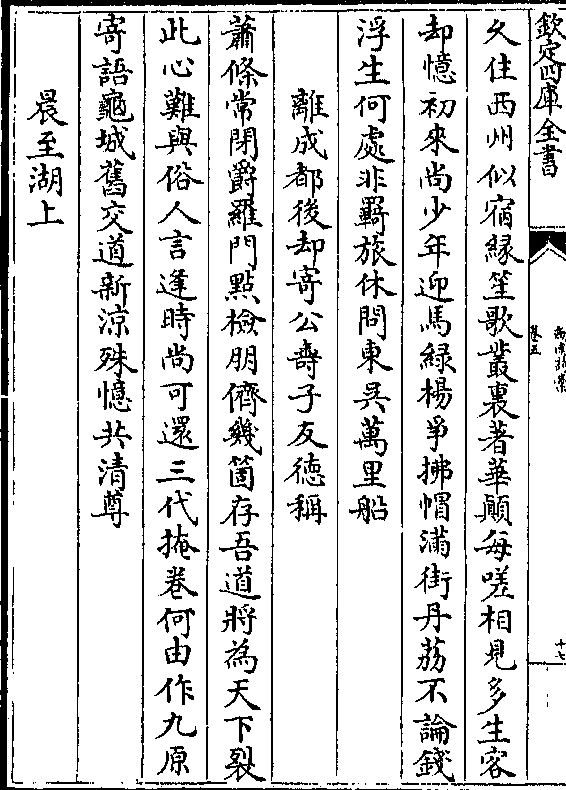 欽定四庫全書
卷五
十七
久住西州似宿緣笙歌叢裏著華顛每嗟相見多生客
却憶初來尚少年迎馬綠楊爭拂帽滿街丹荔不論錢
浮生何處非羇旅休問東吳萬里船
離成都後却寄公壽子友德稱
蕭條常閉爵羅門點檢朋儕幾箇存吾道將為天下裂
此心難與俗人言逢時尚可還三代掩卷何由作九原
寄語龜城舊交道新涼殊憶共清尊
晨至湖上